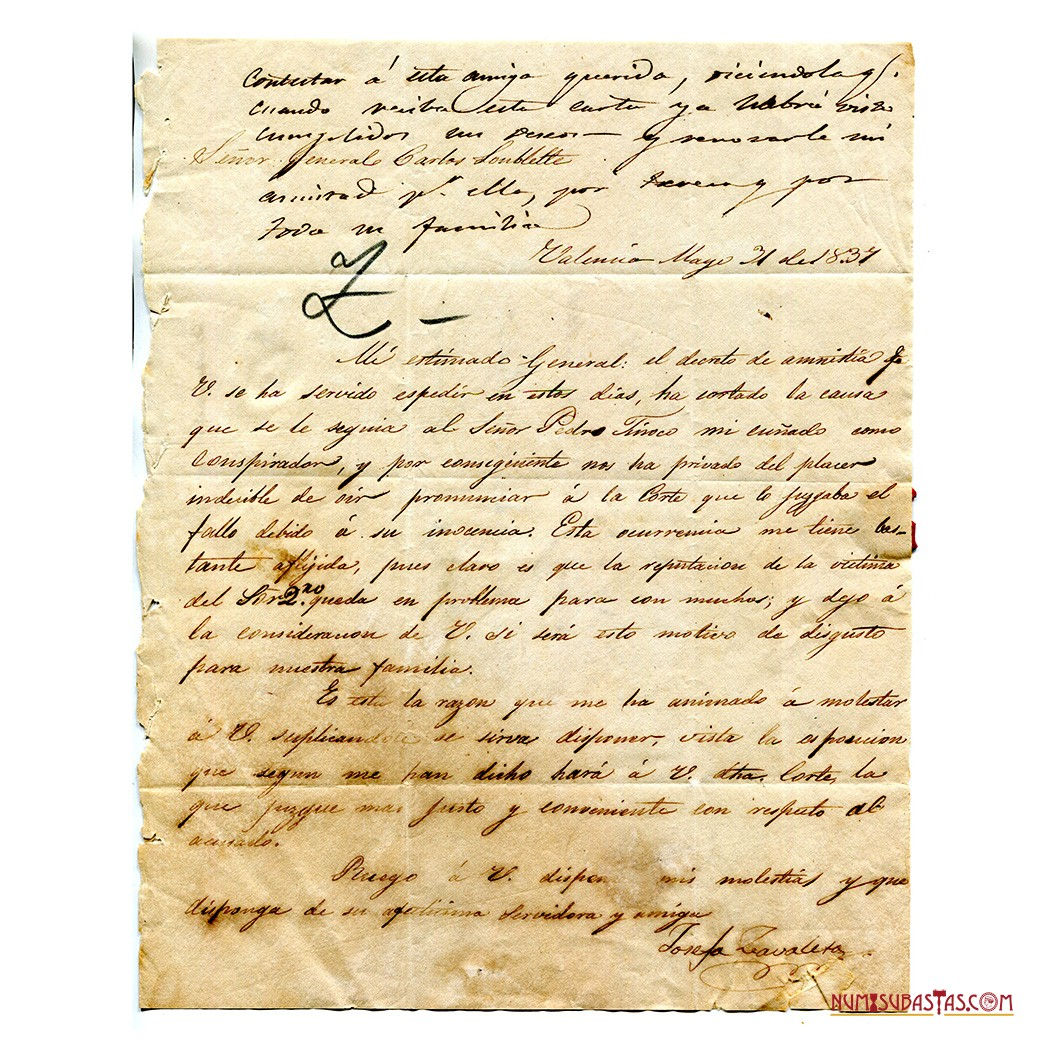 Contestar á esta amiga querida, diciendola q.
cuando reciba esta carta ya habrá visto
cumplidos sus deseos — y renovarle mi
Señor General Carlos Soublette
amistad p.r ella, por y por
toda su familia
Valencia Mayo 31 de 1837
Z. –
Mi estimado General: el decreto de amnistia qe
V. se ha servido espedir en estos dias, ha cortado la causa
que se le seguia al Señor Pedro Tinoco mi cuñado como
Conspirador, y por consigüiente nos ha privado del placer
indecible de oir pronunciar á la Corte que lo juzgaba el
fallo debido á su inocencia. Esta ocurrencia me tiene bas-
tante aflijida, pues claro es que la reputacion de la victima
del Sõr queda en problema para con muchos; y dejo á
la consideracion de V. si será esto motivo de disgusto
para nuestra familia.
Es esta la razon que me ha animado á molestar
á V. suplicandole se sirva disponer, vista la esposicion
que segun me han dicho hará á V. dha. Corte, lo
que juzgue mas justo y conveniente con respecto al
acusado.
Ruego á V. dispen mis molestias y que
disponga de su afectisima servidora y amiga
Josefa Zavaleta
NUMISUBASTAS.COM